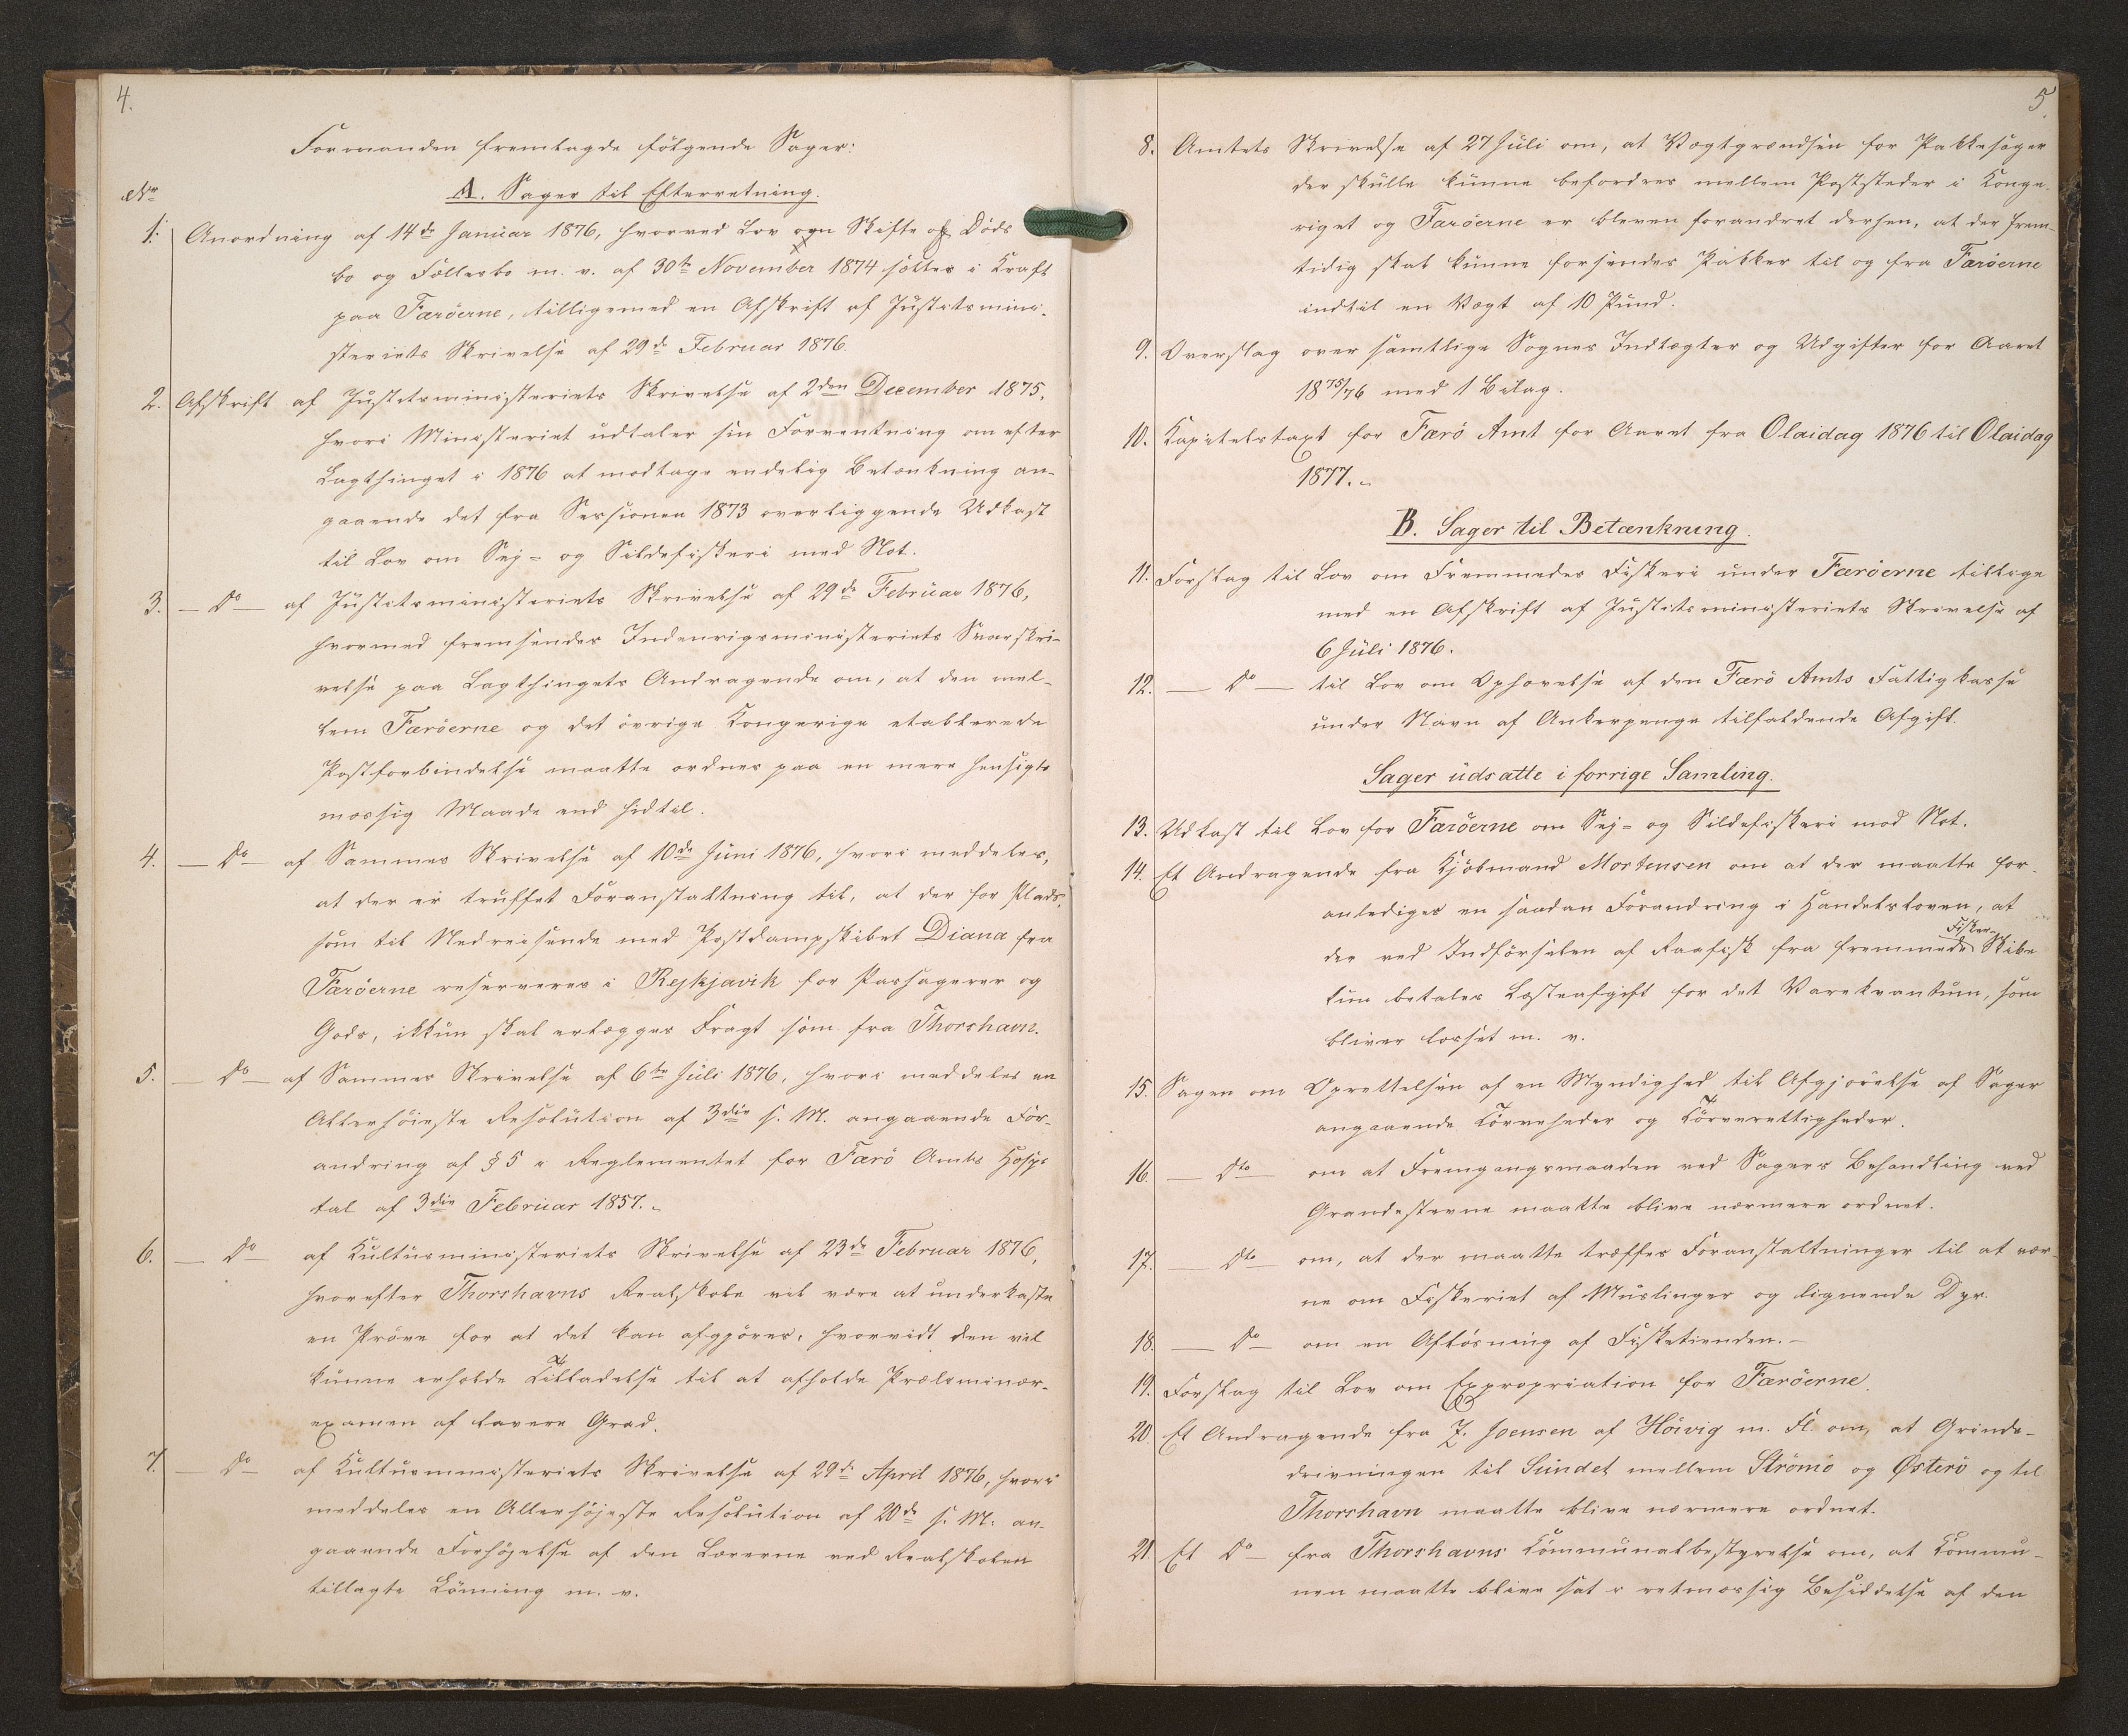 4.
Formanden fremlagde følgende Sager:
No
A. Sager til Efterretning.
1. Anordning af 14de Januar 1876, hvorved Lov om Skifte af Døds
bo og Fællesbo m. v. af 30te November 1874 sættes i Kraft
paa Færöerne, tilligemed en Afskrift af Justitsmini-
steriets Skrivelse af 29de Februar 1876.
2. Afskrift af Justitsministeriets Skrivelse af 2den December 1875,
hvori Ministeriet udtaler sin Forventning om efter
Lagthinget i 1876 at modtage endelig Betænkning an-
gaaende det fra Sessionen 1873 overliggende Udkast
til Lov om Sej- og Sildefiskeri med Not.
3. — Do — af Justitsministeriets Skrivelse af 29de Februar 1876,
hvormed fremsendes Indenrigsministeriets Svarskri-
velse paa Lagthingets Andragende om, at den mel-
lem Færöerne og det övrige Kongerige etablerede
Postforbindelse maatte ordnes paa en mere hensigts
mæssig Maade end hidtil.
4. — Do — af Sammes Skrivelse af 10de Juni 1876, hvori meddeles,
at der er truffet Foranstaltning til, at der for Plads,
som til Nedreisende med Postdampskibet Diana fra
Færöerne reserveres i Rejkjavik for Passagerer og
Gods, ikkun skal erlægges Fragt som fra Thorshavn.
5. — Do — af Sammes Skrivelse af 6te Juli 1876, hvori meddeles en
Allerhöieste Resolution af 3die s. M. angaaende For-
andring af § 5 i Reglementet for Færö Amts Hospi
tal af 3die Februar 1857.
6. — Do — af Kultusministeriets Skrivelse af 23de Februar 1876,
hvorefter Thorshavns Realskole vil være at underkaste
en Pröve for at det kan afgjöres, hvorvidt den vil
kunne erholde Tilladelse til at afholde Præliminær-
examen af lavere Grad.
7. — Do — af Kultusministeriets Skrivelse af 29de April 1876, hvori
meddeles en Allerhöjeste Resolution af 20de s. M. an-
gaaende Forhöjelse af den Lærerne ved Realskolen
tillagte Lönning m. v.
5.
8. Amtets Skrivelse af 27 Juli om, at Vægtgrændsen for Pakkesager
der skulle kunne befordres mellem Poststeder i Konge-
riget og Færöerne er bleven forandret derhen, at der frem-
tidig skal kunne forsendes Pakker til og fra Færöerne
indtil en Vægt af 10 Pund.
9. Overslag over samtlige Sognes Indtægter og Udgifter for Aaret
1875/76 med 1 Bilag.
10. Kapitelstaxt for Færö Amt for Aaret fra Olaidag 1876 til Olaidag
1877.
B. Sager til Betænkning.
11. Forslag til Lov om Fremmedes Fiskeri under Færöerne tillige
med en Afskrift af Justitsministeriets Skrivelse af
6 Juli 1876.
12. — Do — til Lov om Ophævelse af den Færö Amts Fattigkasse
under Navn af Ankerpenge tilfaldende Afgift.
Sager udsatte i forrige Samling.
13. Udkast til Lov for Færöerne om Sej- og Sildefiskeri med Not.
14. Et Andragende fra Kjöbmand Mortensen om at der maatte for-
anlediges en saadan Forandring i Handelsloven, at
Fisker-
der ved Indförselen af Raafisk fra fremmede Skibe
kun betales Læsteafgift for det Varekvantum, som
bliver losset m. v.
15. Sagen om Oprettelsen af en Myndighed til Afgjörelse af Sager
angaaende Törveheder og Törverettigheder.
16. — Dto — om at Fremgangsmaaden ved Sagers Behandling ved
Grandestevne maatte blive nærmere ordnet.
17. — Dto — om, at der maatte træffes Foranstaltninger til at vær-
ne om Fiskeriet af Muslinger og lignende Dyr.
18. — Do — om en Aflösning af Fisketienden. —
19. Forslag til Lov om Expropriation for Færöerne.
20. Et Andragende fra J. Joensen af Höivig m. Fl. om, at Grinde-
drivningen til Sundet mellem Strömö og Østerö og til
Thorshavn maatte blive nærmere ordnet.
21. Et Do — fra Thorshavns Kommunalbestyrelse om, at Kommu-
nen maatte blive sat i retmæssig Besiddelse af den